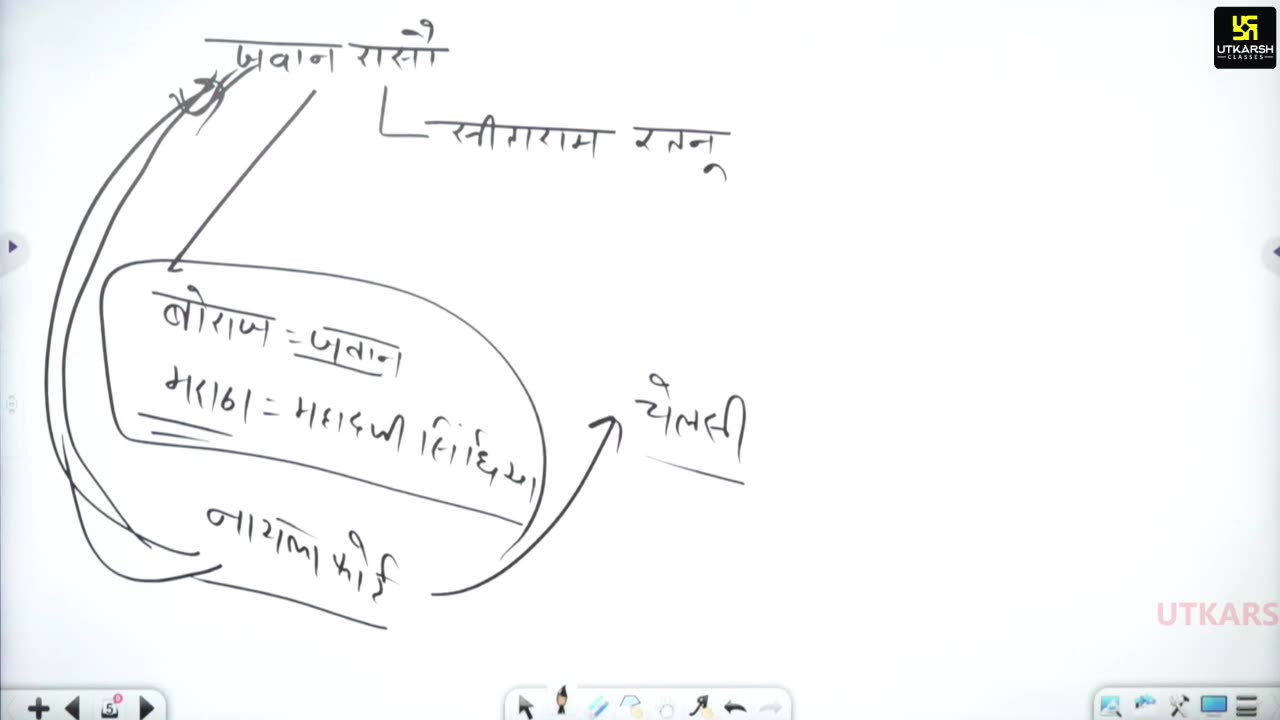 UTKARSH
CLASSES
जवान रासौ
सीताराम रतनू
बोराज = जवान
मराठा = महादजी सिंधिया
नायला फोर्ट
चेलसी
UTKARS
5